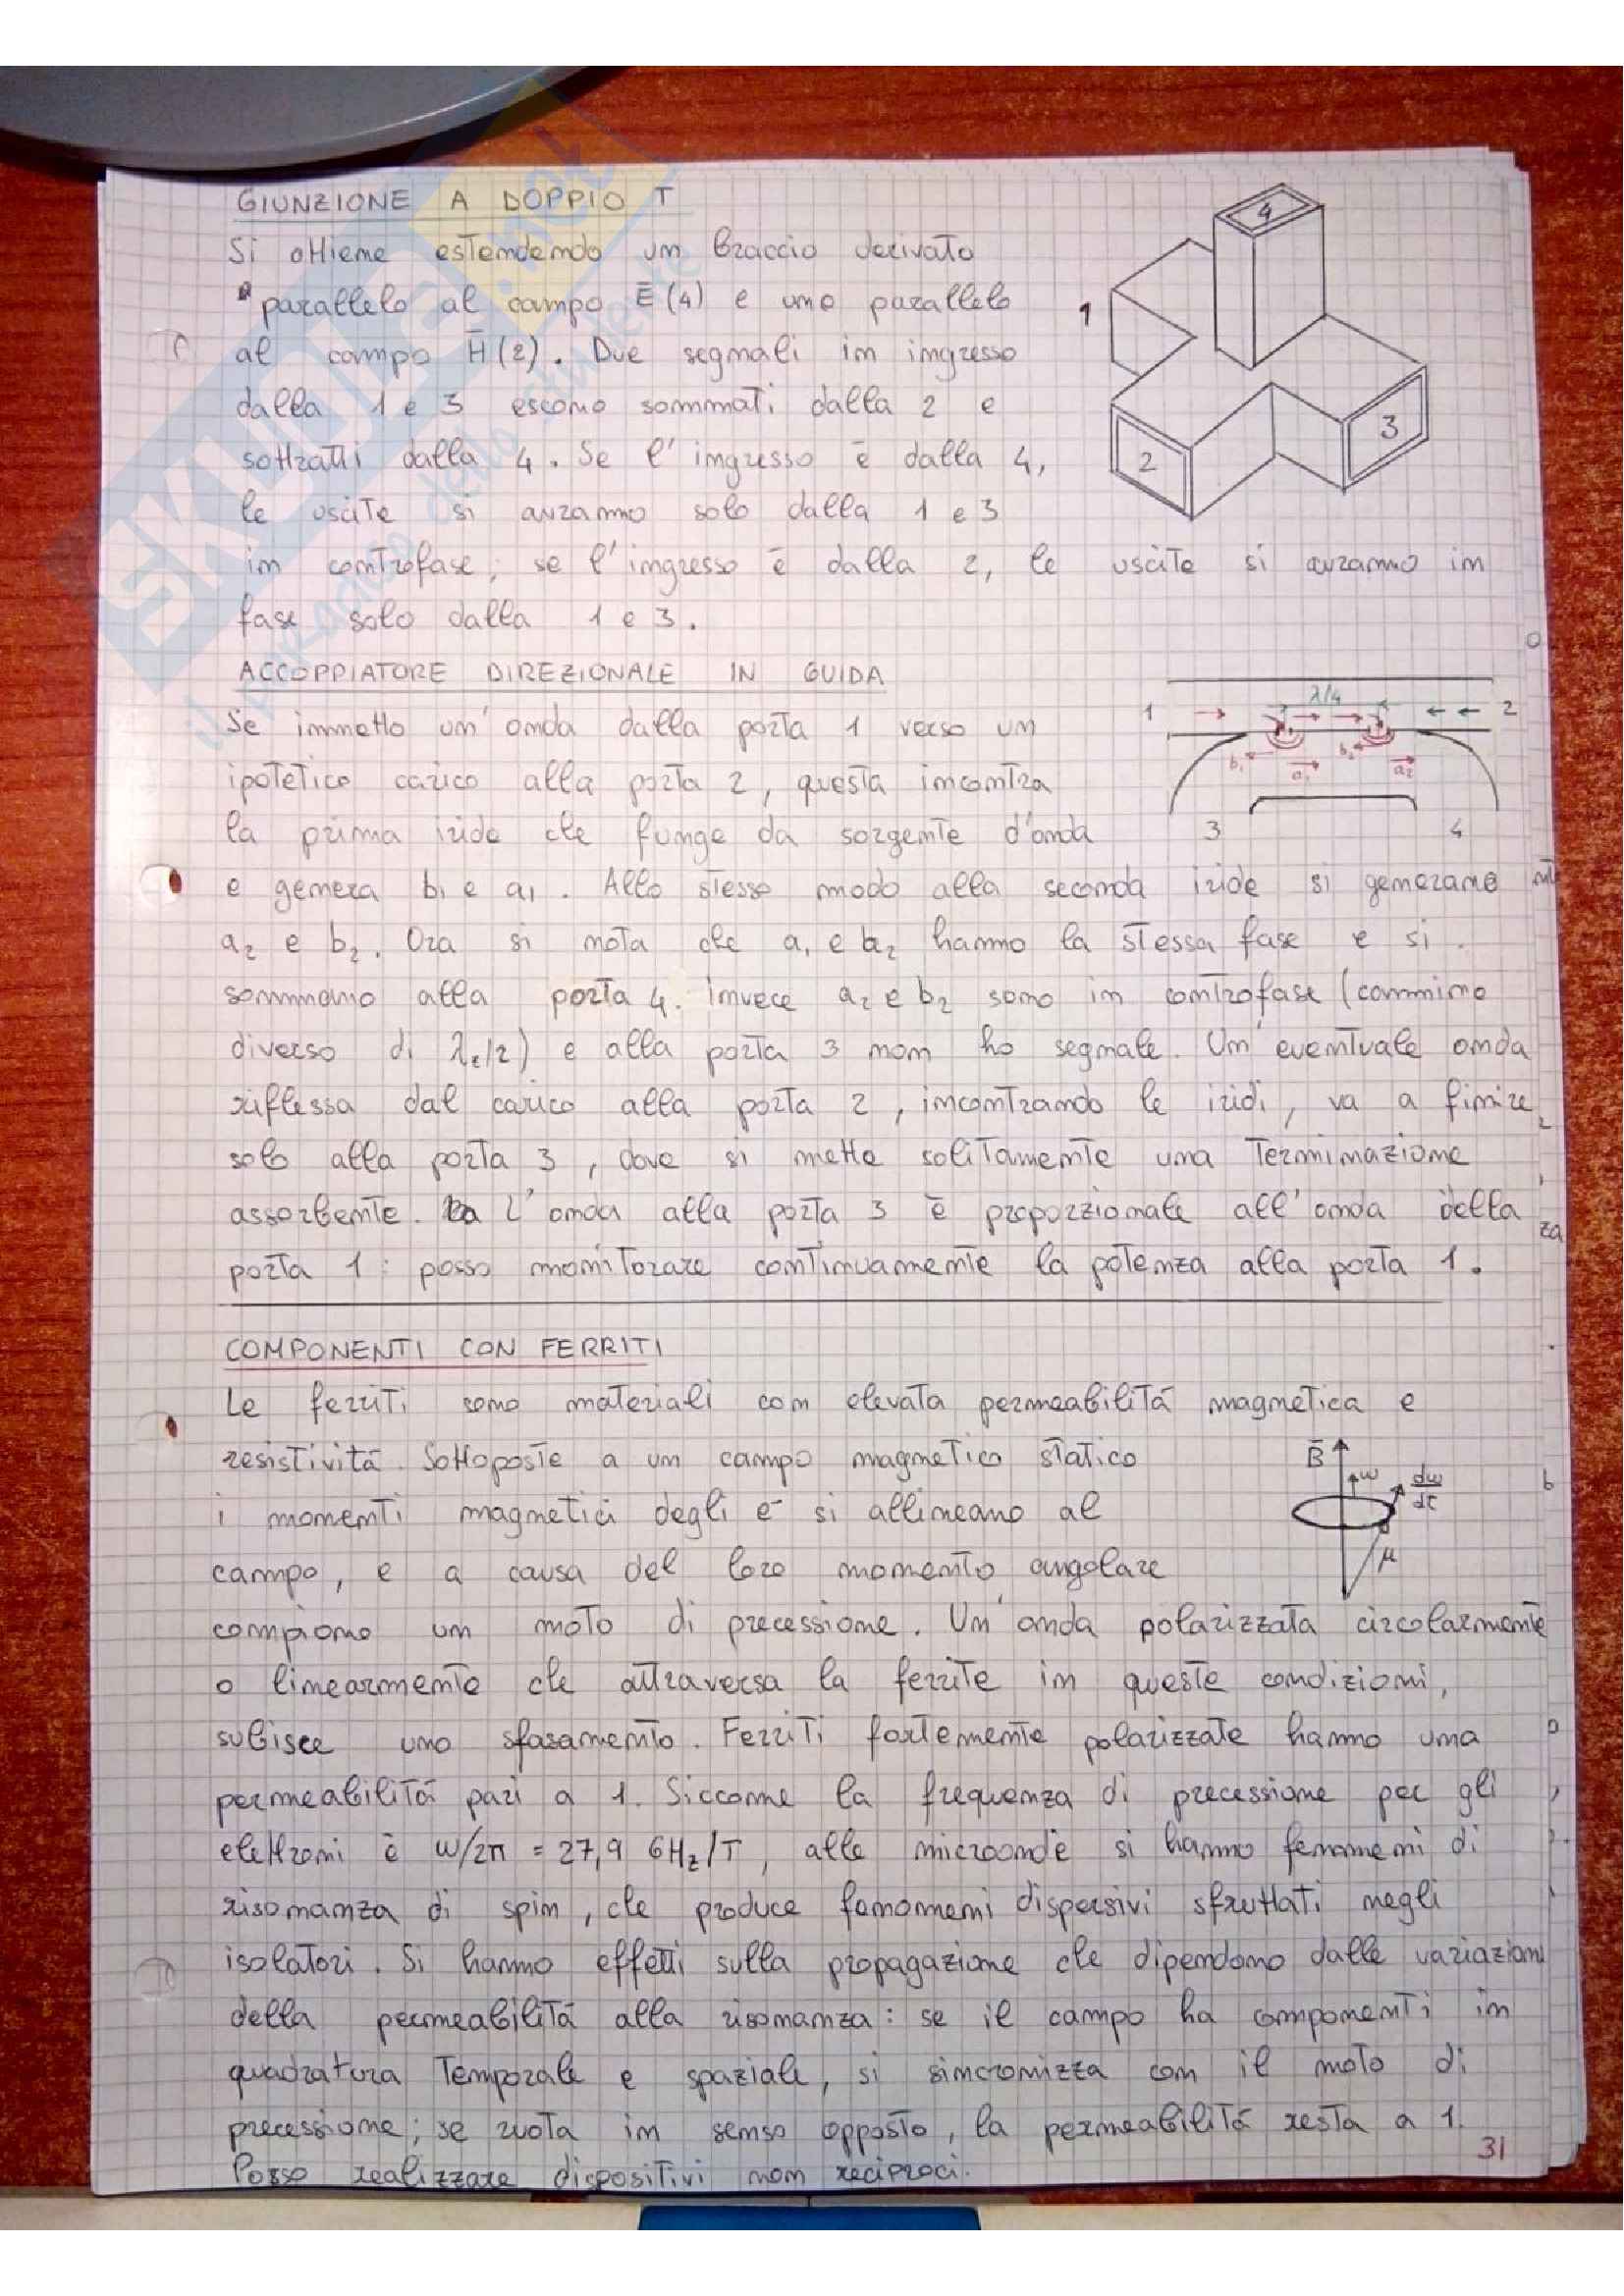 GIUNZIONE A DOPPIO T
Si ottiene estendendo un braccio derivato
parallelo al campo Ē (4) e uno parallelo
al campo H̄ (2). Due segnali in ingresso
dalla 1 e 3 escono sommati dalla 2 e
sottratti dalla 4. Se l'ingresso è dalla 4,
le uscite si avranno solo dalla 1 e 3
in controfase; se l'ingresso è dalla 2, le uscite si avranno in
fase solo dalla 1 e 3.
1
4
2
3
ACCOPPIATORE DIREZIONALE IN GUIDA
Se immetto un'onda dalla porta 1 verso un
ipotetico carico alla porta 2, questa incontra
la prima iride che funge da sorgente d'onda
e genera b1 e a1. Allo stesso modo alla seconda iride si generano
a2 e b2. Ora si nota che a1 e a2 hanno la stessa fase e si
sommano alla porta 4. invece a2 e b2 sono in controfase (cammino
diverso di λ/2) e alla porta 3 non ho segnale. Un'eventuale onda
riflessa dal carico alla porta 2, incontrando le iridi, va a finire
solo alla porta 3, dove si mette solitamente una terminazione
assorbente. L'onda alla porta 3 è proporzionale all'onda della
porta 1: posso monitorare continuamente la potenza alla porta 1.
1
λ/4
2
b1
a1
b2
a2
3
4
COMPONENTI CON FERRITI
Le ferriti sono materiali con elevata permeabilità magnetica e
resistività. Sottoposte a un campo magnetico statico
i momenti magnetici degli e⁻ si allineano al
campo, e a causa del loro momento angolare
compiono un moto di precessione. Un'onda polarizzata circolarmente
o linearmente che attraversa la ferrite in queste condizioni,
subisce uno sfasamento. Ferriti fortemente polarizzate hanno una
permeabilità pari a 1. Siccome la frequenza di precessione per gli
elettroni è ω/2π = 27,9 GHz/T, alle microonde si hanno fenomeni di
risonanza di spin, che produce fonomeni dispersivi sfruttati negli
isolatori. Si hanno effetti sulla propagazione che dipendono dalle variazioni
della permeabilità alla risonanza: se il campo ha componenti in
quadratura temporale e spaziale, si sincronizza con il moto di
precessione; se ruota in senso opposto, la permeabilità resta a 1.
Posso realizzare dispositivi non reciproci.
B̄
ω
dω
dt
μ
31
SKUOLA.net